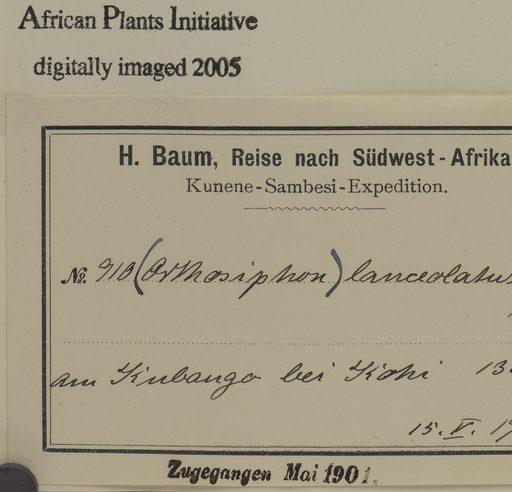 African Plants Initiative
digitally imaged 2005
H. Baum, Reise nach Südwest-Afrika
Kunene-Sambesi-Expedition.
№. 910 (Orthosiphon) lanceolatus
am Kubango bei Kohi 13
15. V. 19
Zugegangen Mai 1901.